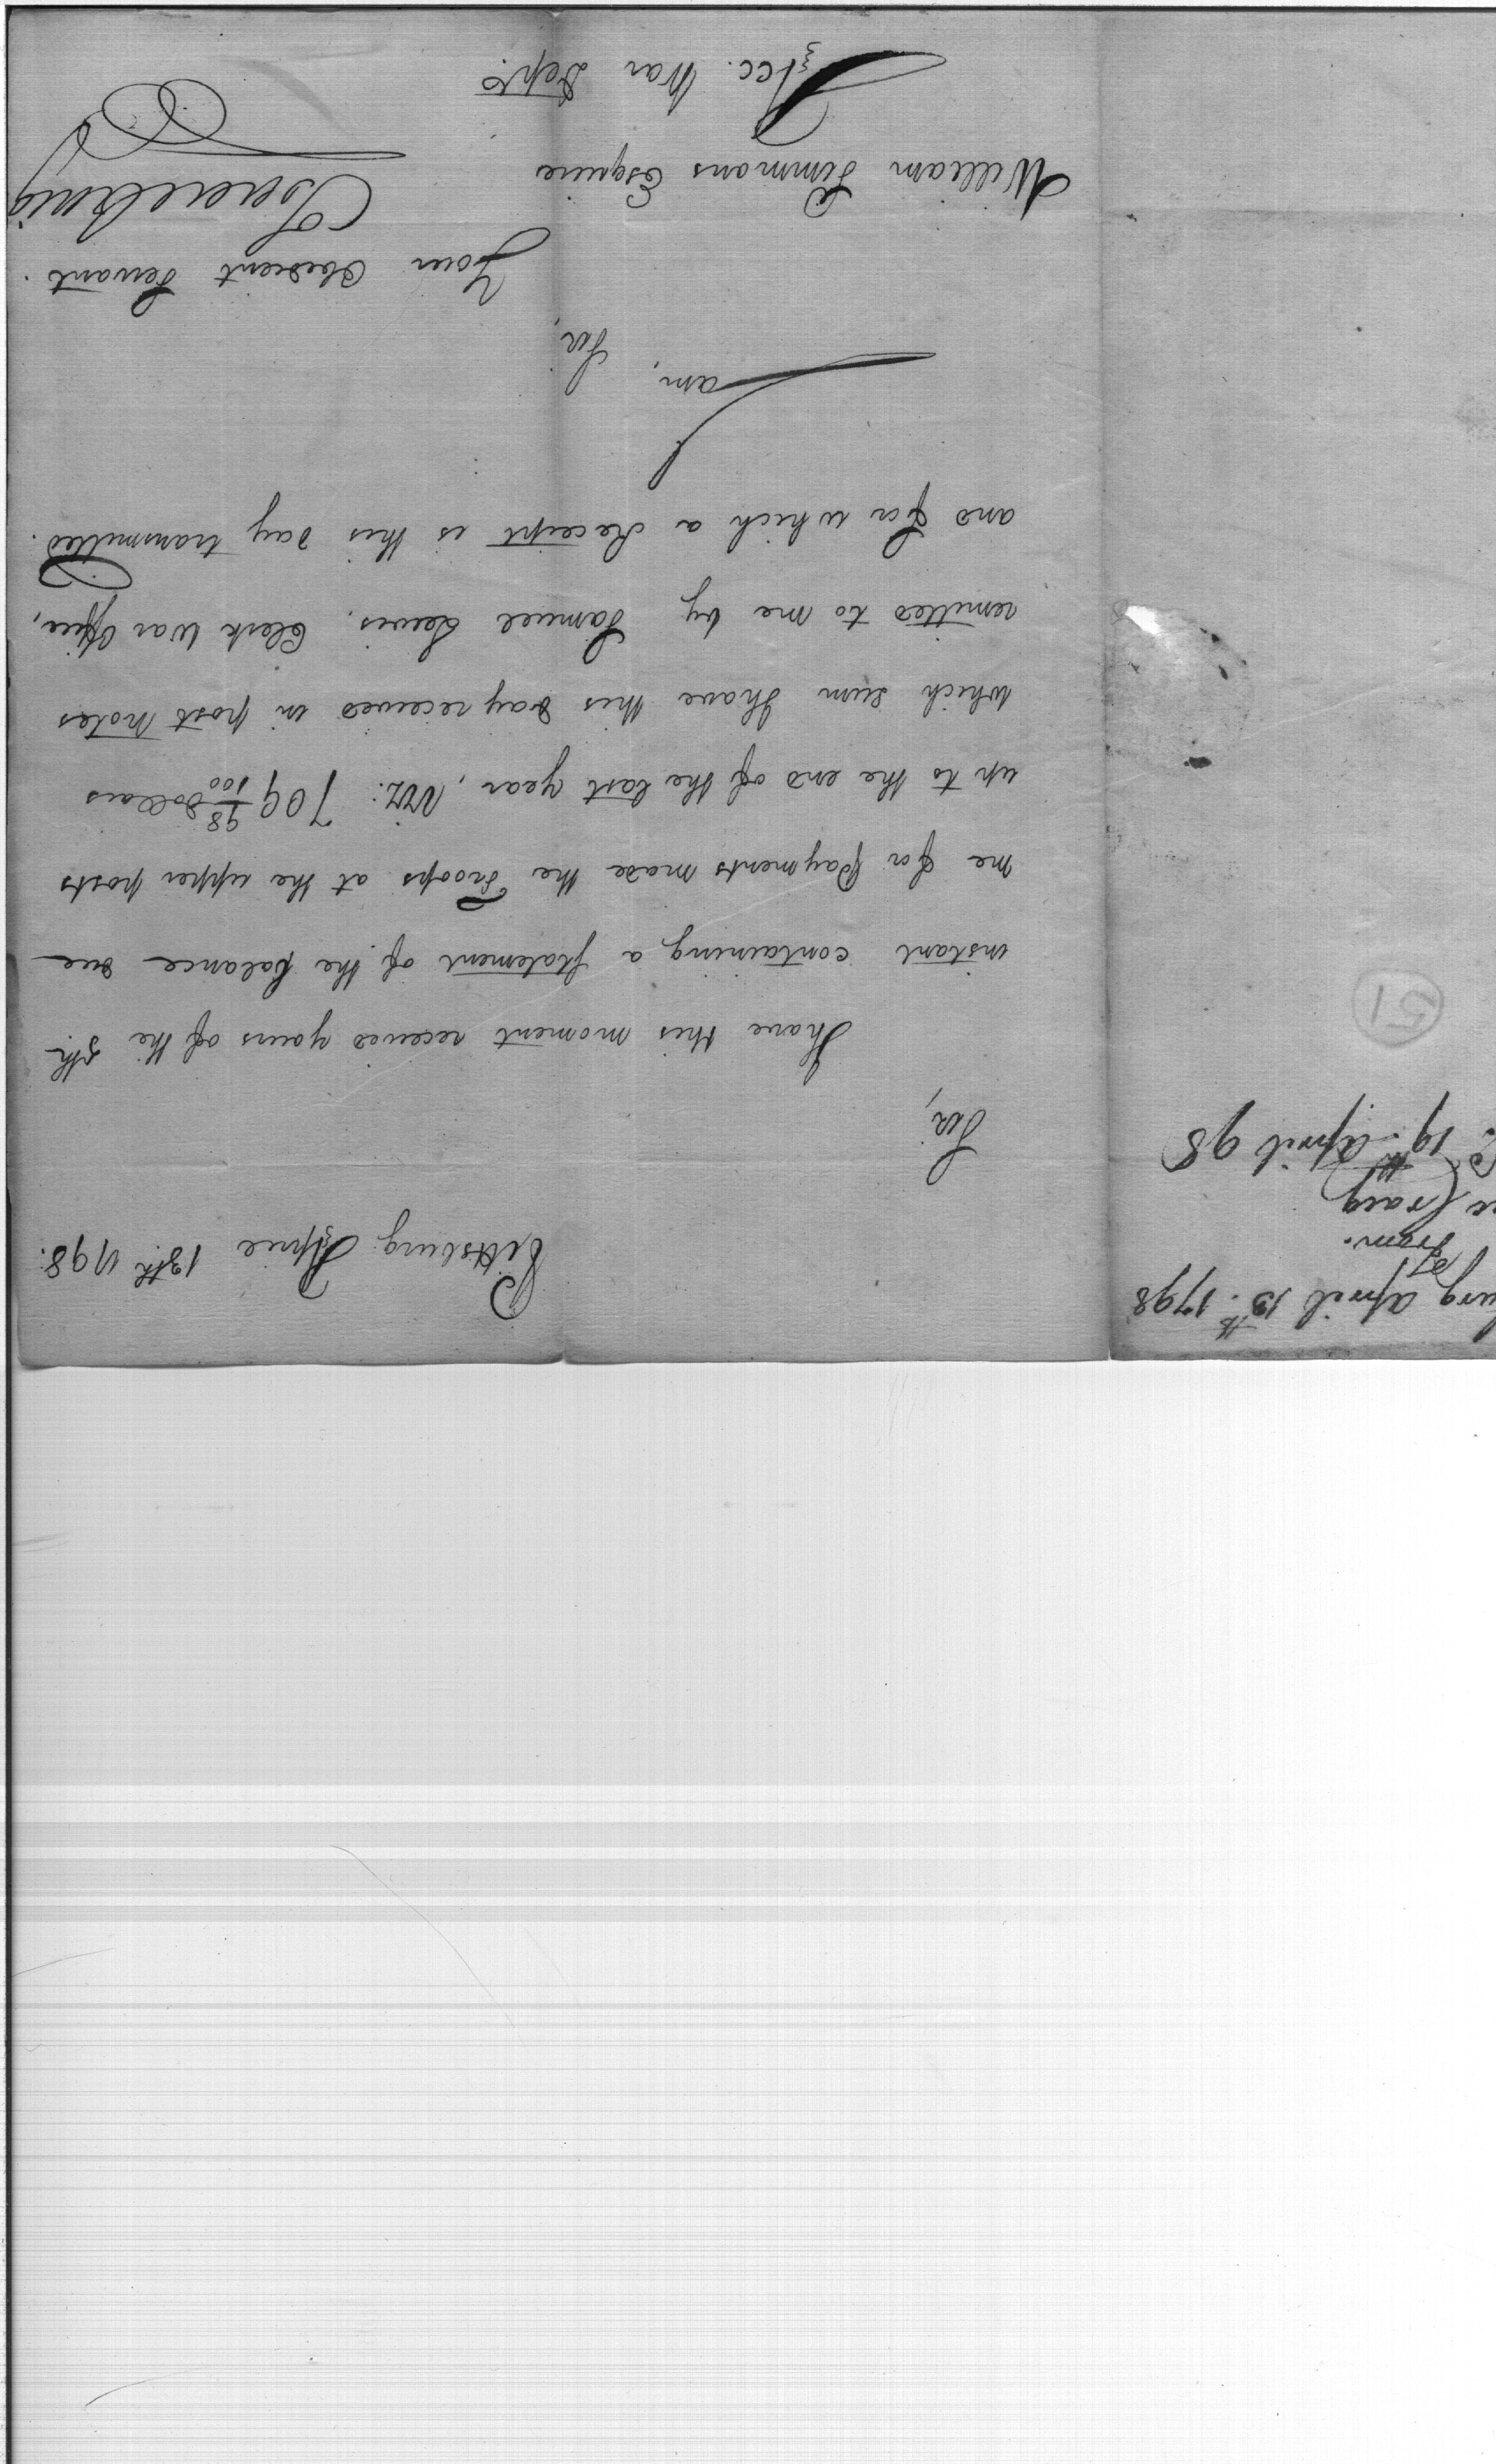 Pittsburg April 13th 1798.
Sir,
I have this moment received yours of the 5th
instant containing a statement of the balance due
me for Payments made the Troops at the upper posts
up to the end of the last year, Viz: 709 98/100 dollars
which sum I have this day received in post notes
remitted to me by Samuel Lewis. Clerk War Office,
and for which a Receipt is this day transmitted.
I am,
Sir,
Your Obedient Servant.
Isaac Craig
William Simmons Esquire
Acc. War Dept.
burg April 13th. 1798
from.
Craig
19th April 98
51